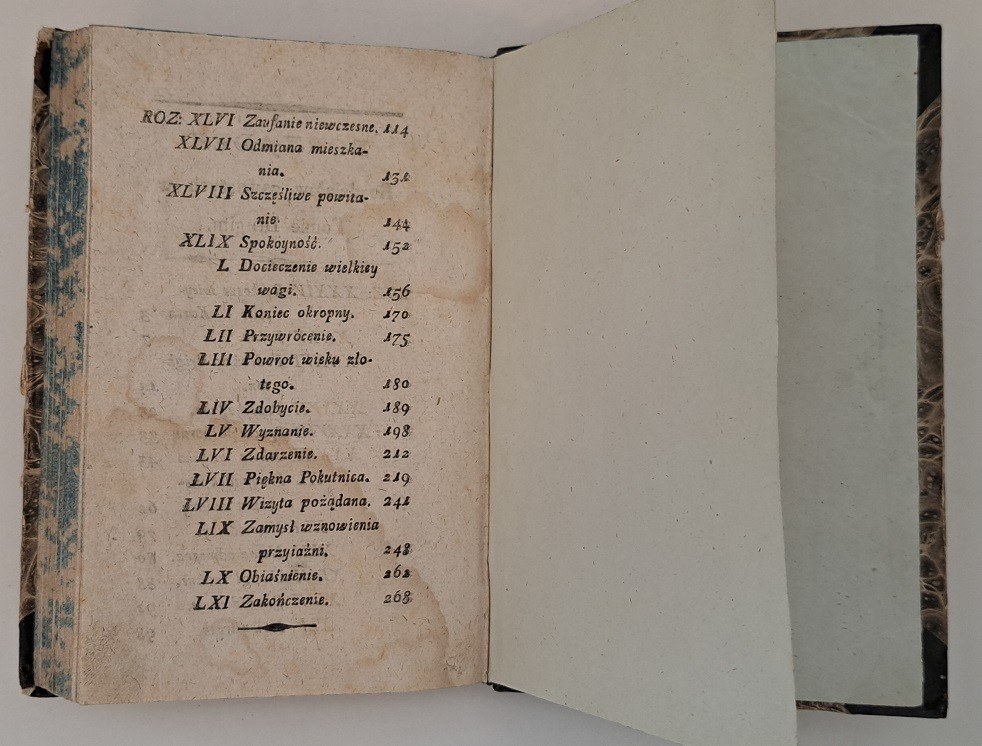 ROZ: XLVI Zaufanie niewczesne. 114
XLVII Odmiana mieszka-
nia. 131
XLVIII Szczęśliwe powita-
nie. 144
XLIX Spokoyność. 152
L Docieczenie wielkiey
wagi. 156
LI Koniec okropny. 170
LII Przywrócenie. 175
LIII Powrot wieku zło-
tego. 180
LIV Zdobycie. 189
LV Wyznanie. 198
LVI Zdarzenie. 212
LVII Piękna Pokutnica. 219
LVIII Wizyta pożądana. 241
LIX Zamysł wznowienia
przyiaźni. 248
LX Obiaśnienie. 262
LXI Zakończenie. 268